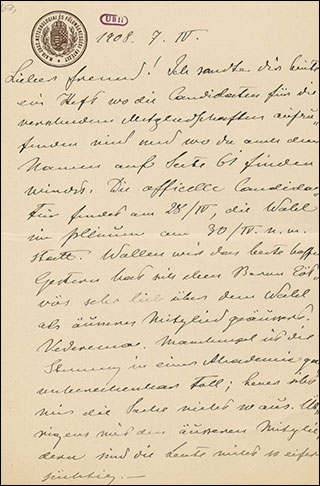 M. KIR. ORSZ. METEOROLOGIAI ÉS FÖLDMÁGNESSÉGI INTÉZET
U811
1908. 7. IV.
Lieber Freund! Ich sandte dir heute
ein Heft wo die Candidaten für die
verschiedenen Mitgliedschaften aufzu-
finden sind und wo du auch deinen
Namen auf Seite 61 finden
wirst. Die officielle Candida-
tur findet am 28/IV, die Wahl
im plenum am 30/IV. n. m.
statt. Wollen wir das beste hoffen
Gestern hat sich Baron Eöt-
vös sehr lieb über dem Wahl
als äusseres Mitglied geäussert.
Vederemo. Manchmal ist die
Stimmung in einer Akademie ganz
unberechenbar toll; heuer sieht
mir die Sache nicht so aus. Üb-
rigens mit den äusseren Mitglie-
dern sind die Leute nicht so eifer-
süchtig. —